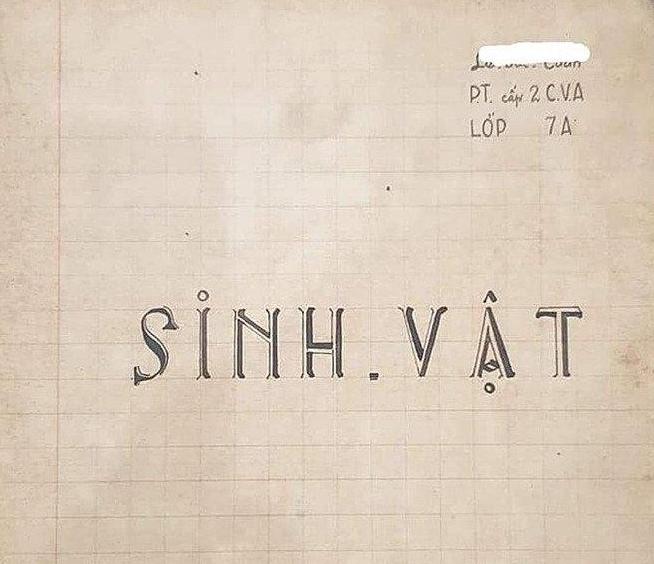 P.T. cấp 2 C.V.A
LỚP 7A
SINH.VẬT